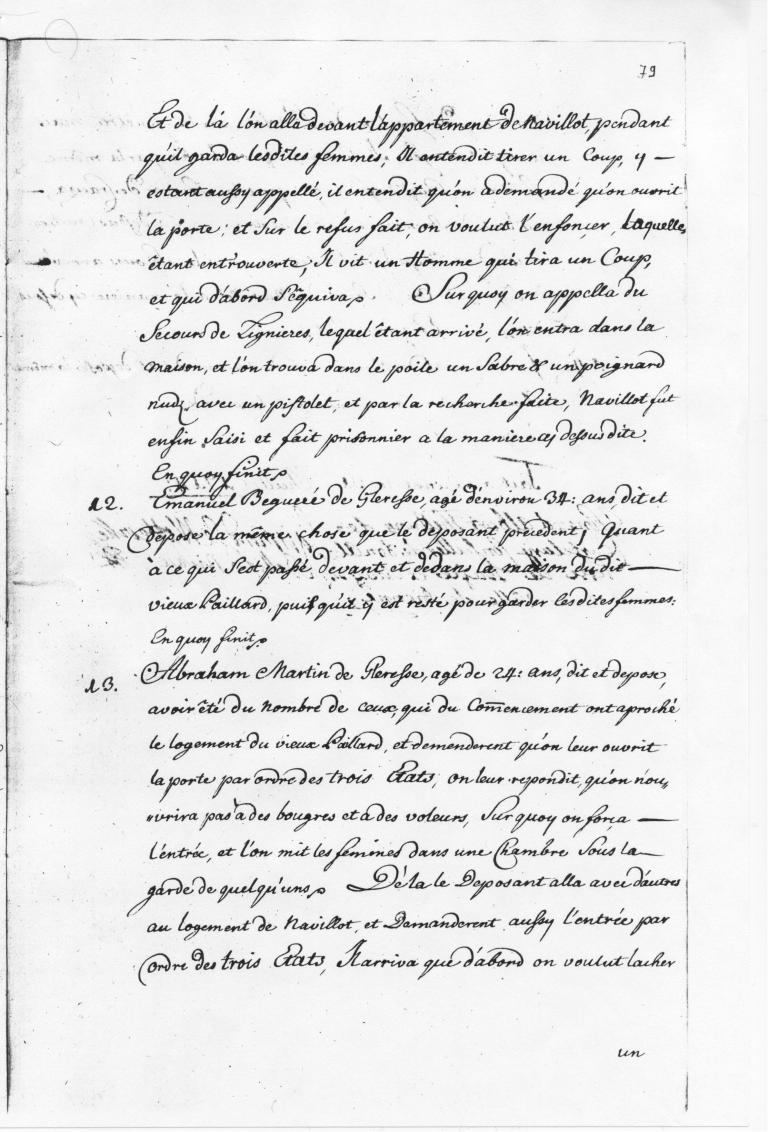 79
Et de là l'on alla devant l'appartement de Navillot, pendant
qu'il garda lesdites femmes; Il entendit tirer un Coup, y —
estant aussy appellé, il entendit qu'on a demandé qu'on ouvrit
la porte; et Sur le refus fait, on voulut l'enfonçer, laquelle,
êtant entr'ouverte, Il vit un Homme qui tira un Coup,
et qui d'abord S'êquiva. Sur quoy on appella du
Secours de Lignieres, lequel êtant arrivé, l'on entra dans la
maison, et l'on trouva dans le poile un Sabre & un poignard
nuds avec un pistolet, et par la recherche faite, Navillot fut
enfin Saisi et fait prisonnier a la maniere cy dessus dite.
En quoy finit.
12. Emanuel Begueré de Gleresse, agé d'environ 34: ans, dit et
depose la même chose que le deposant precedent, Quant
à ce qui S'est passé devant et dedans la maison dudit —
vieux Paillard, puisqu'il y est resté pour garder lesdites femmes:
En quoy finit.
13. Abraham Martin de Gleresse, agé de 24: ans, dit et depose,
avoir êté du Nombre de ceux, qui du Com̃encement ont aproché
le logement du vieux Paillard, et demenderent qu'on leur ouvrit
la porte par ordre des trois Etats, on leur repondit, qu'on n'ou„
„vrira pas à des bougres et à des voleurs, Sur quoy on força —
l'entrée, et l'on mit les femmes dans une Chambre Sous la —
garde de quelqu'uns. De la le Deposant alla avec d'autres
au logement de Navillot, et Demanderent aussy l'entrée par
ordre des trois Etats, Il arriva que d'abord on voulut lacher
un